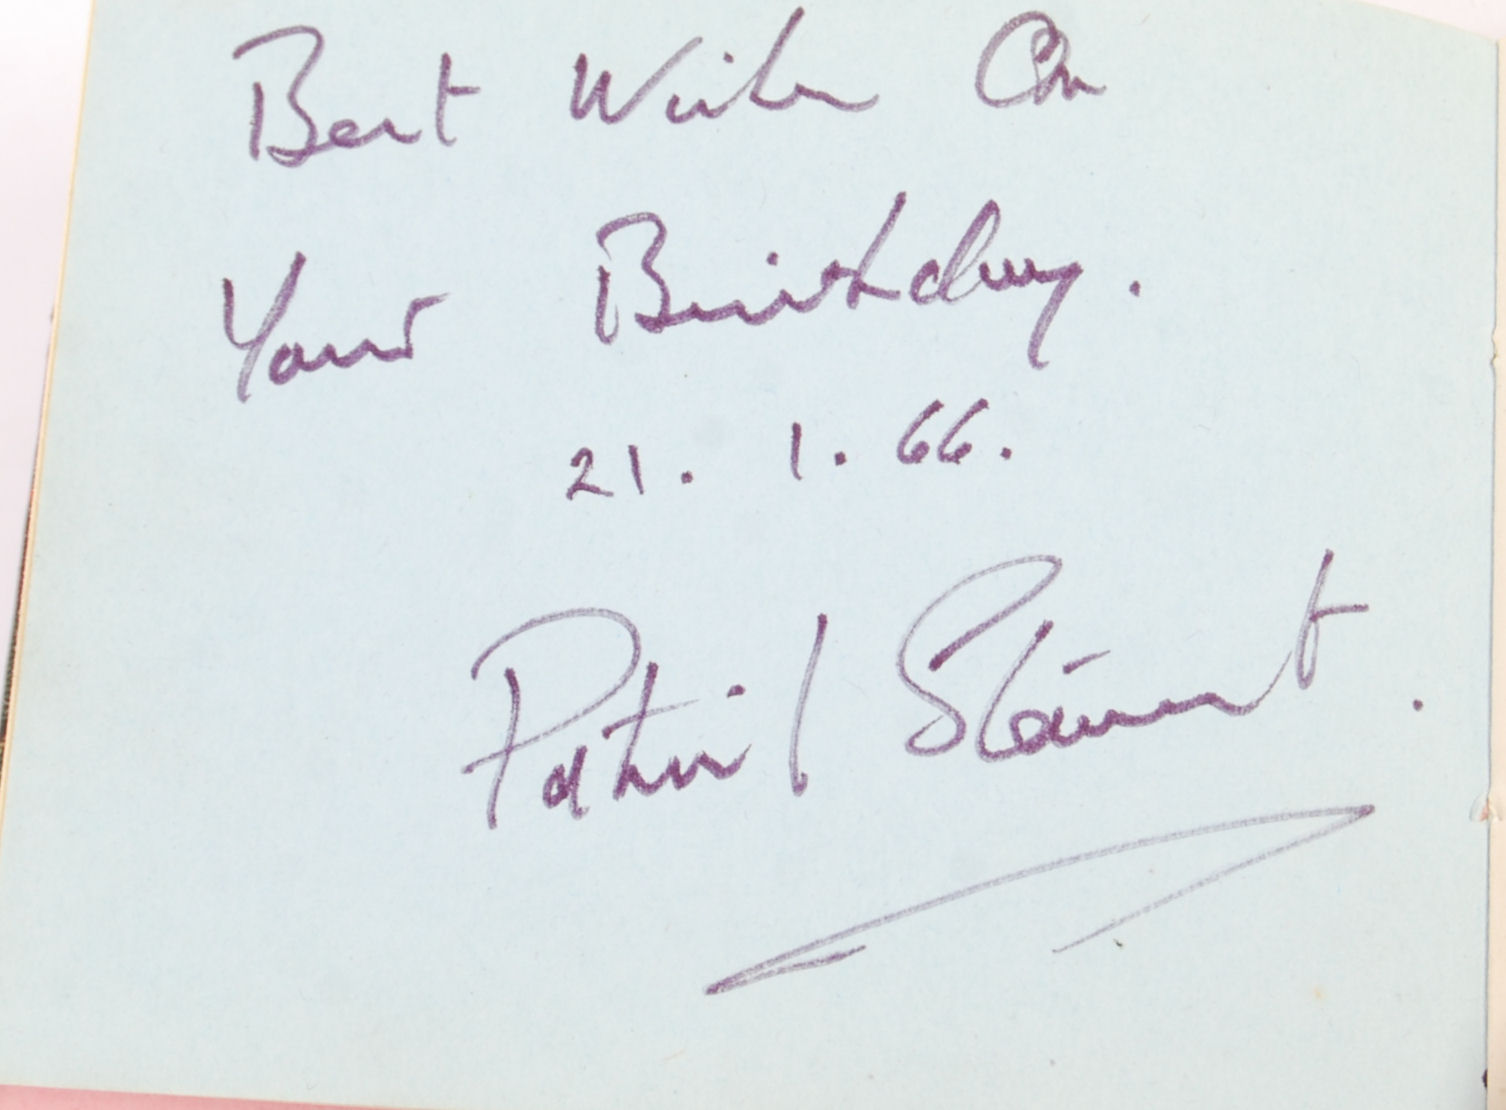 Best Wishes On
Your Birthday.
21. 1. 66.
Patrick Stewart.